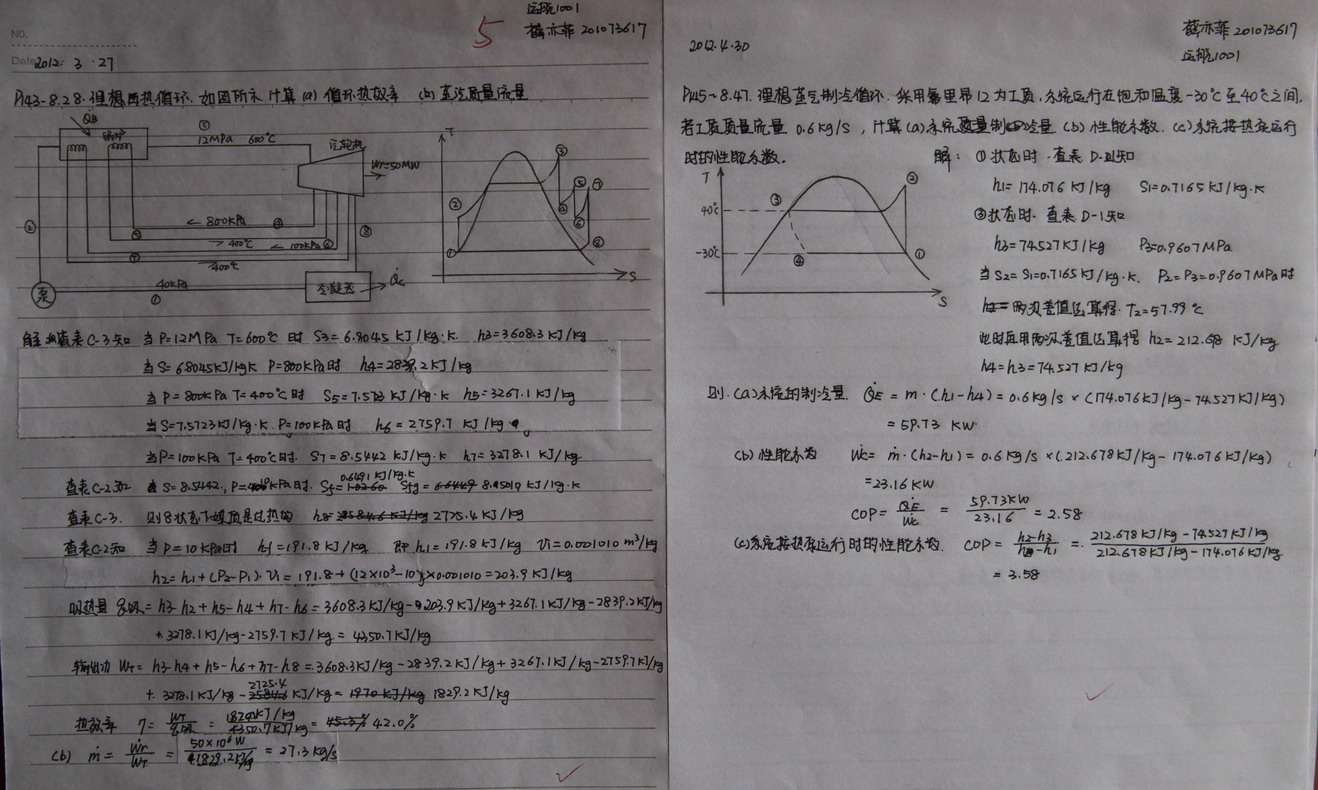 NO.
Date 2012. 3. 27
5
运航1001
薛亦菲 201073617
P143-8.28. 理想再热循环. 如图所示 计算 (a) 循环热效率 (b) 蒸汽质量流量
锅炉
③
12MPa 600℃
汽轮机
ẆT=50MW
T
② 
⑧
← 800kPa ④
⑤ → 400℃ ← 100kPa ⑥
⑦ → 400℃
40kPa
①
泵
冷凝器
Q̇c
S
查表C-3知 当 P=12MPa T=600℃ 时 S3=6.8045 KJ/kg·K. h3=3608.3 KJ/kg
当S=6.8045KJ/kgK P=800kPa时 h4=2839.2KJ/kg
当P=800kPa T=400℃时 S5=7.573 KJ/kg·K h5=3267.1KJ/kg
当S=7.5723KJ/kg·K. P=100kPa时 h6=2759.7 KJ/kg
当P=100kPa T=400℃时. S7=8.5442 KJ/kg·K h7=3278.1 KJ/kg
0.6491 KJ/kg·K
查表C-2知 当S=8.5442, P=10kPa时. Sf= Sfg= 8.15019 KJ/kg·K
查表C-3. 则8状态下 是过热的 h8= 2725.4KJ/kg
查表C-2知 当P=10kPa时 hf=191.8KJ/kg. 即h1=191.8KJ/kg V1=0.001010 m³/kg
h2=h1+(P2-P1)·V1=191.8+(12×10³-10)×0.001010=203.9 KJ/kg
吸热量 q吸=h3-h2+h5-h4+h7-h6=3608.3KJ/kg-203.9KJ/kg+3267.1KJ/kg-2839.2KJ/kg
+3278.1KJ/kg-2759.7KJ/kg=4350.7KJ/kg
输出功 WT=h3-h4+h5-h6+h7-h8=3608.3KJ/kg-2839.2KJ/kg+3267.1KJ/kg-2759.7KJ/kg
2725.4
+3278.1KJ/kg- KJ/kg= 1829.2KJ/kg
热效率 η=WT/q吸=1829KJ/kg/4350.7KJ/kg= 42.0%
(b) ṁ=ẆT/WT=50×10⁶W/1829.2KJ/kg=27.3kg/s
薛亦菲 201073617
2012.4.30
运航1001
P145-8.47. 理想蒸气制冷循环. 采用氟里昂12为工质, 系统运行在饱和温度-30℃至40℃之间,
若工质质量流量 0.6kg/s, 计算(a)系统 制冷量 (b) 性能系数. (c)系统按热泵运行
时的性能系数.
T
40℃
-30℃
③
②
④
①
S
解: ①状态时. 查表D-1知
h1=174.076KJ/kg S1=0.7165KJ/kg·K
③状态时. 查表D-1知
h3=74.527KJ/kg P3=0.9607MPa
当S2=S1=0.7165KJ/kg·K. P2=P3=0.9607MPa时
两次差值运算得. T2=57.99℃
此时再用两次差值运算得 h2=212.678 KJ/kg
h4=h3=74.527KJ/kg
则. (a)系统的制冷量. Q̇E=ṁ·(h1-h4)=0.6kg/s×(174.076KJ/kg-74.527KJ/kg)
=59.73 KW.
(b) 性能系数 Ẇc=ṁ·(h2-h1)=0.6kg/s×(212.678KJ/kg-174.076KJ/kg)
=23.16KW
COP=Q̇E/Ẇc=59.73KW/23.16=2.58
(c)系统按热泵运行时的性能系数. COP=h2-h3/h2-h1=212.678KJ/kg-74.527KJ/kg/212.678KJ/kg-174.076KJ/kg
=3.58